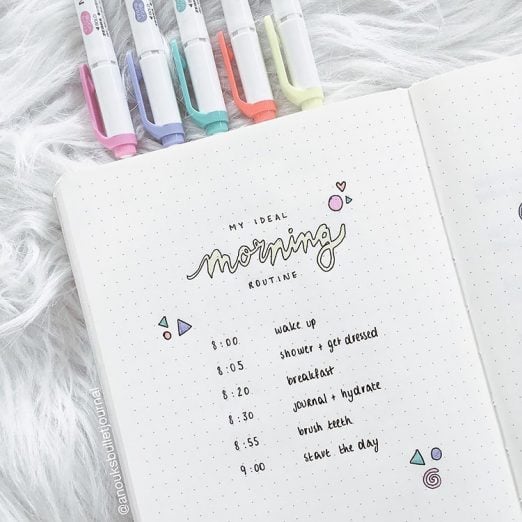 MY IDEAL
morning
ROUTINE
8:00 wake up
8:05 shower + get dressed
8:20 breakfast
8:30 journal + hydrate
8:55 brush teeth
9:00 start the day
@anouksbulletjournal